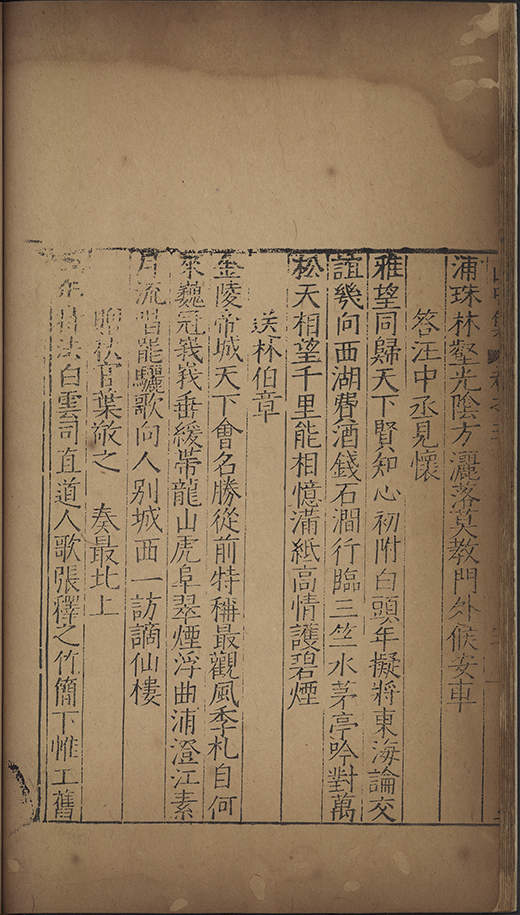 浦珠林壑光陰方灑落莫教門外候安車
答汪中丞見懷
雅望同歸天下賢知心初附白頭年擬將東海論交
誼幾向西湖費酒錢石澗行臨三竺水茅亭吟對萬
松天相望千里能相憶滿紙高情護碧煙
送林伯章
金陵帝城天下會名勝從前特稱最觀風季札自何
來巍冠峩峩垂緩帶龍山虎阜翠煙浮曲浦澄江素
月流唱罷驪歌向人別城西一訪謫仙樓
官葉敬之 奏最北上
法白雲司直道人歌張釋之竹簡下帷工舊